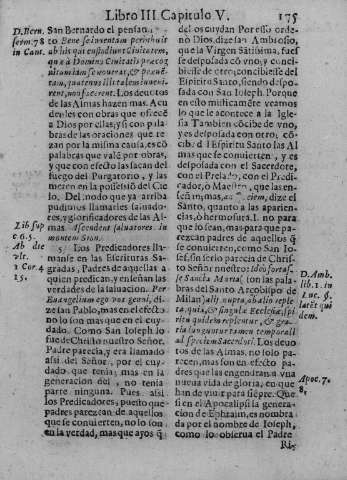 Libro III Capitulo V. 175
D. Bern.
serm. 78
in Cant.
San Bernardo el pensamiento
Bene se inventam perhibuit
ab his qui custodiunt Civitatem,
quia à Domini Civitatis precog
Los devotos
de las Almas hazen mas. Acu-
den les con obras que ofrecē
à Dios por ellas; y si con pala-
bras de las oraciones que re-
zan por la misma causa, es cō
palabras que valē por obras,
y que con efecto las sacan del
fuego del Purgatorio, y las
meten en la possessiō del Cie-
lo. Del modo que ya arriba
pudimos llamarles Salvado-
res, y glorificadores de las Al-
mas. Ascendent salvatores in
montem Sion.
Lib. sup
c. 6. §.
Ab die
ult.
1 Cor. 4
15.
Los Predicadores llama-
manse en las Escrituras Sa-
gradas, Padres de aquellas a
quien predican, y enseñan las
verdades de la salvacion. Per
Evangelium ego vos genui, di-
ze san Pablo, mas en el efecto
no lo son mas que en el cuy-
dado. Como San Ioseph lo
fue de Christo nuestro Señor.
Padre parecia, y era llamado
assi del Señor, por el cuy-
dado que tenia; mas en la
generacion del, no tenia
parte ninguna. Pues assi
los Predicadores, puesto que
padres parezcan de aquellos
que se convierten, no lo son
en la verdad, mas que ayos q̄
del os cuydan Por esso orde-
nò Dios, dize san Ambrosio,
que la Virgen Sātissima, fues-
se desposada cō vno; y conci-
biesse de otro; concibiesse del
Espiritu Santo, siendo despo-
sada con San Ioseph. Porque
en esto misticamēte veamos
lo que le acontece a la Igle-
sia Tambien cōcibe de vno,
y es desposada con otro; cō-
cibe d'l Espiritu Santo las Al
mas que se convierten, y es
desposada con el Sacerdote,
con el Prelado, con el Predi-
cador, ò Maestro, que las en-
señ
Santo, quanto a las aparien-
cias, ò hermosura. I. no para
que lo sean, mas para que pa-
rezcan padres de aquellos q̄
se convierten, como San Io-
sef, sin serlo parecia de Christo
Señor nuestro: Ideo foras-
se Sancta Maria (son las pala-
bras del Santo Arçobispo de
Milan) alij nupta, ab alio reple-
ta, quia, & singulæ Ecclesiæ, spi-
ritu quidem replentur, & gra-
tia iunguntur tamen temporali
ad speciem Sacerdoti. Los devo-
tos de las Almas, no solo pa-
recen, mas son en efecto pa-
dres que las engendran a vna
nueva vida de gloria, en que
han de vivir para siēpre. Que
si en el Apocalipsi la genera-
cion de Ephraim, es nombra
da por el nombre de Ioseph,
como lo observa el Padre
D. Amb.
lib. 2. in
Luc. §.
latet qui
dem.
Apoc. 7.
8.
Ri-